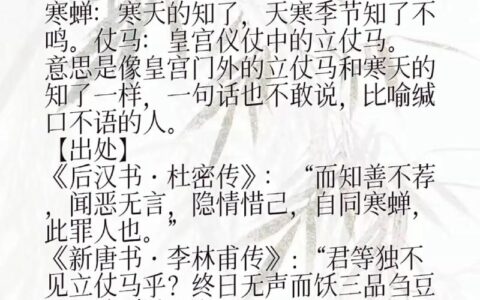 寒蝉：寒天的知了，天寒季节知了不
鸣。仗马：皇宫仪仗中的立仗马。
意思是像皇宫门外的立仗马和寒天的
知了一样，一句话也不敢说，比喻缄
口不语的人。
【出处】
《后汉书·杜密传》：“而知善不荐
，闻恶无言，隐情惜己，自同寒蝉，
此罪人也。”
《新唐书·李林甫传》：“君等独不
见立仗马乎？终日无声而饫三品刍豆